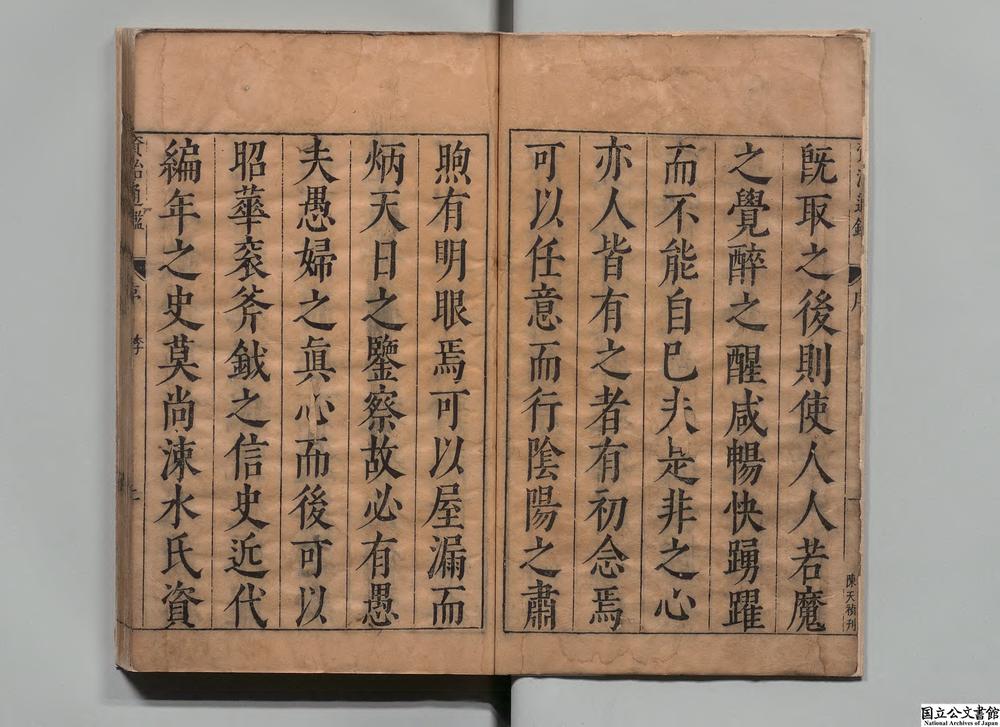 旣取之後則使人人若魔
之覺醉之醒咸暢快踴躍
而不能自已夫是非之心
亦人皆有之者有初念焉
可以任意而行陰陽之肅
煦有明眼焉可以屋漏而
炳天日之鑒察故必有愚
夫愚婦之眞心而後可以
昭華衮斧鉞之信史近代
編年之史莫尚涑水氏資
資治通鑑
序
陳天禎刊
資治通鑑
序
李
国立公文書館
National Archives of Japan